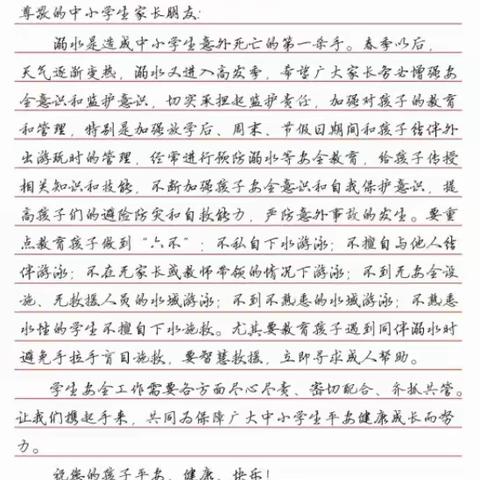 尊敬的中小学生家长朋友:
溺水是造成中小学生意外死亡的第一杀手。春季以后,
天气逐渐变热,溺水又进入高发季,希望广大家长务必增强安
全意识和监护意识,切实承担起监护责任,加强对孩子的教育
和管理,特别是加强放学后、周末、节假日期间和孩子结伴外
出游玩时的管理,经常进行预防溺水等安全教育,给孩子传授
相关知识和技能,不断加强孩子安全意识和自我保护意识,提
高孩子们的避险防灾和自救能力,严防意外事故的发生。要重
点教育孩子做到"六不":不私自下水游泳;不擅自与他人结
伴游泳;不在无家长或教师带领的情况下游泳;不到无安全设
施、无救援人员的水域游泳;不到不熟悉的水域游泳;不熟悉
水性的学生不擅自下水施救。尤其要教育孩子遇到同伴溺水时
避免手拉手盲目施救,要智慧救援,立即寻求成人帮助。
学生安全工作需要各方面尽心尽责、密切配合、齐抓共管。
让我们携起手来,共同为保障广大中小学生平安健康成长而努
力。
祝您的孩子平安、健康、快乐!